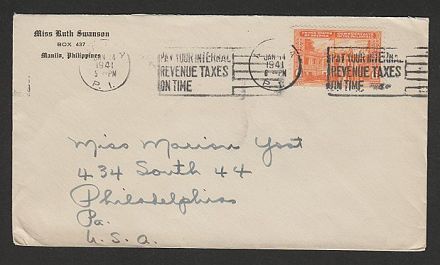 Miss Ruth Swanson
BOX 437
Manila, Philippines
JAN 14
1941
PM
P. I.
PAY YOUR INTERNAL
REVENUE TAXES
ON TIME
JAN 14
1941
PM
P. I.
PAY YOUR INTERNAL
REVENUE TAXES
ON TIME
Miss Marion Yost
434 South 44
Philadelphia
Pa.
U.S.A.